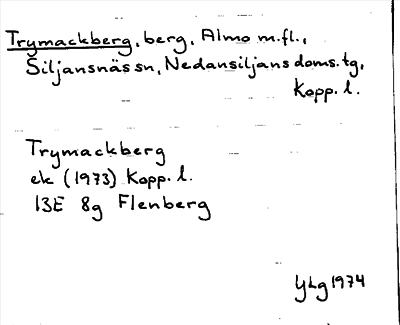 Trymackberg, berg, Almo m.fl.,
Siljansnäs sn, Nedansiljans doms. tg,
Kopp. l.
Trymackberg
ek (1973) Kopp. l.
13E 8g Flenberg
YLg 1974